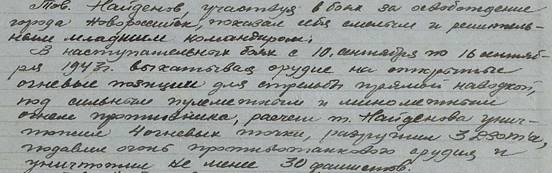 Тов. Найденов, участвуя в боях за освобождение
города Новороссийск, показал себя смелым и решитель-
ным младшим командиром.
В наступательных боях с 10 сентября по 16 сентяб-
ря 1943 г. выкатывая орудие на открытые
огневые позиции для стрельбы прямой наводкой,
под сильным пулеметным и минометным
огнем противника, расчет т. Найденова унич-
тожил 4 огневых точки, разрушил 3 Дзота,
подавил огонь противотанкового орудия и
уничтожил не менее 30 фашистов.